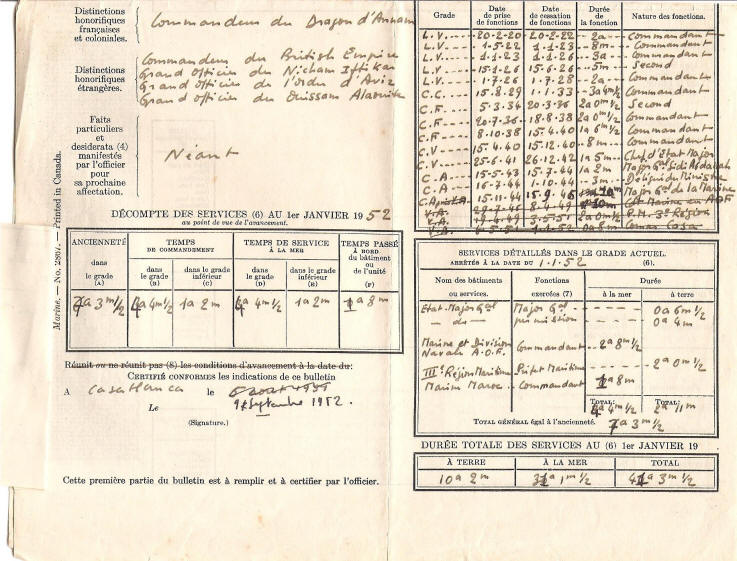 Distinctions
honorifiques
françaises
et coloniales.
Commandeur du Dragon d'Annam
Distinctions
honorifiques
étrangères.
Commandeur du British Empire
Grand Officier du Nicham Iftikar
Grand officier de l'ordre d'Aviz
Grand officier du Ouissam Alaouite
Faits
particuliers
et
desiderata (4)
manifestés
par l'officier
pour
sa prochaine
affectation.
Néant
Marine. — No. 2867. — Printed in Canada.
DÉCOMPTE DES SERVICES (6) AU 1er JANVIER 1952
au point de vue de l'avancement.
ANCIENNETÉ
dans
le grade
(A)
TEMPS
DE COMMANDEMENT
dans
le grade
(B)
dans le grade
inférieur
(C)
TEMPS DE SERVICE
À LA MER
dans
le grade
(D)
dans le grade
inférieur
(E)
TEMPS PASSÉ
À BORD
du bâtiment
ou
de l'unité
(F)
7a 3m 1/2
4a 4m 1/2
1a 2m
4a 4m 1/2
1a 2m
1a 8m
Réunit ou ne réunit pas (8) les conditions d'avancement à la date du:
CERTIFIÉ CONFORMES les indications de ce bulletin
A Casablanca le
Le 9 Septembre 1952.
(Signature.)
Cette première partie du bulletin est à remplir et à certifier par l'officier.
Grade
Date
de prise
de fonctions
Date
de cessation
de fonctions
Durée
de la
fonction
Nature des fonctions.
L.V. 20-2-20 20-2-22 2a Commandant
L.V. 1-5-22 1-1-23 8m Commandant
L.V. 1-1-23 1-1-26 3a Commandant
L.V. 15-1-26 15-6-26 5m Second
L.V. 1-7-26 1-7-28 2a Commandant
C.C. 15-8-29 1-1-33 3a 4m 1/2 Commandant
C.F. 5-3-34 20-3-36 2a 0m 1/2 Second
C.F. 20-7-36 18-8-38 2a 0m 1/2 Commandant
C.F. 8-10-38 15-4-40 1a 6m 1/2 Commandant
C.V. 15-4-40 15-12-40 8m Commandant
C.V. 25-6-41 26-12-42 1a 5m Chef d'Etat Major
C.A. 15-5-43 15-7-44 1a 2m Major Gal Sidi Abdallah
C.A. 16-7-44 1-10-44 3m
15-11-44 15-9-46 10m Major Gal de la Marine
V.A. 29-7-46 8-4-49 Ct Marine en AOF
V.A. 19-4-49 3-5-51 2a 0m 1/2 P.M. 3e Région
V.A. 6-5-51 1-1-52 0a 8m Comar Casa
SERVICES DÉTAILLÉS DANS LE GRADE ACTUEL.
ARRÊTÉS À LA DATE DU 1-1-52 (6).
Nom des bâtiments
ou services.
Fonctions
exercées (7)
Durée
à la mer
à terre
Etat-Major Gal Major Gal 0a 6m 1/2
— do — permission 0a 4m
Marine et Division
Navale A.O.F. Commandant 2a 8m 1/2
IIIe Région Maritime Préfet Maritime 2a 0m 1/2
Marine Maroc Commandant 1a 8m
TOTAL: 4a 4m 1/2
TOTAL: 2a 11m
TOTAL GÉNÉRAL égal à l'ancienneté. 7a 3m 1/2
DURÉE TOTALE DES SERVICES AU (6) 1er JANVIER 19
À TERRE
À LA MER
TOTAL
10a 2m
1m 1/2
3m 1/2